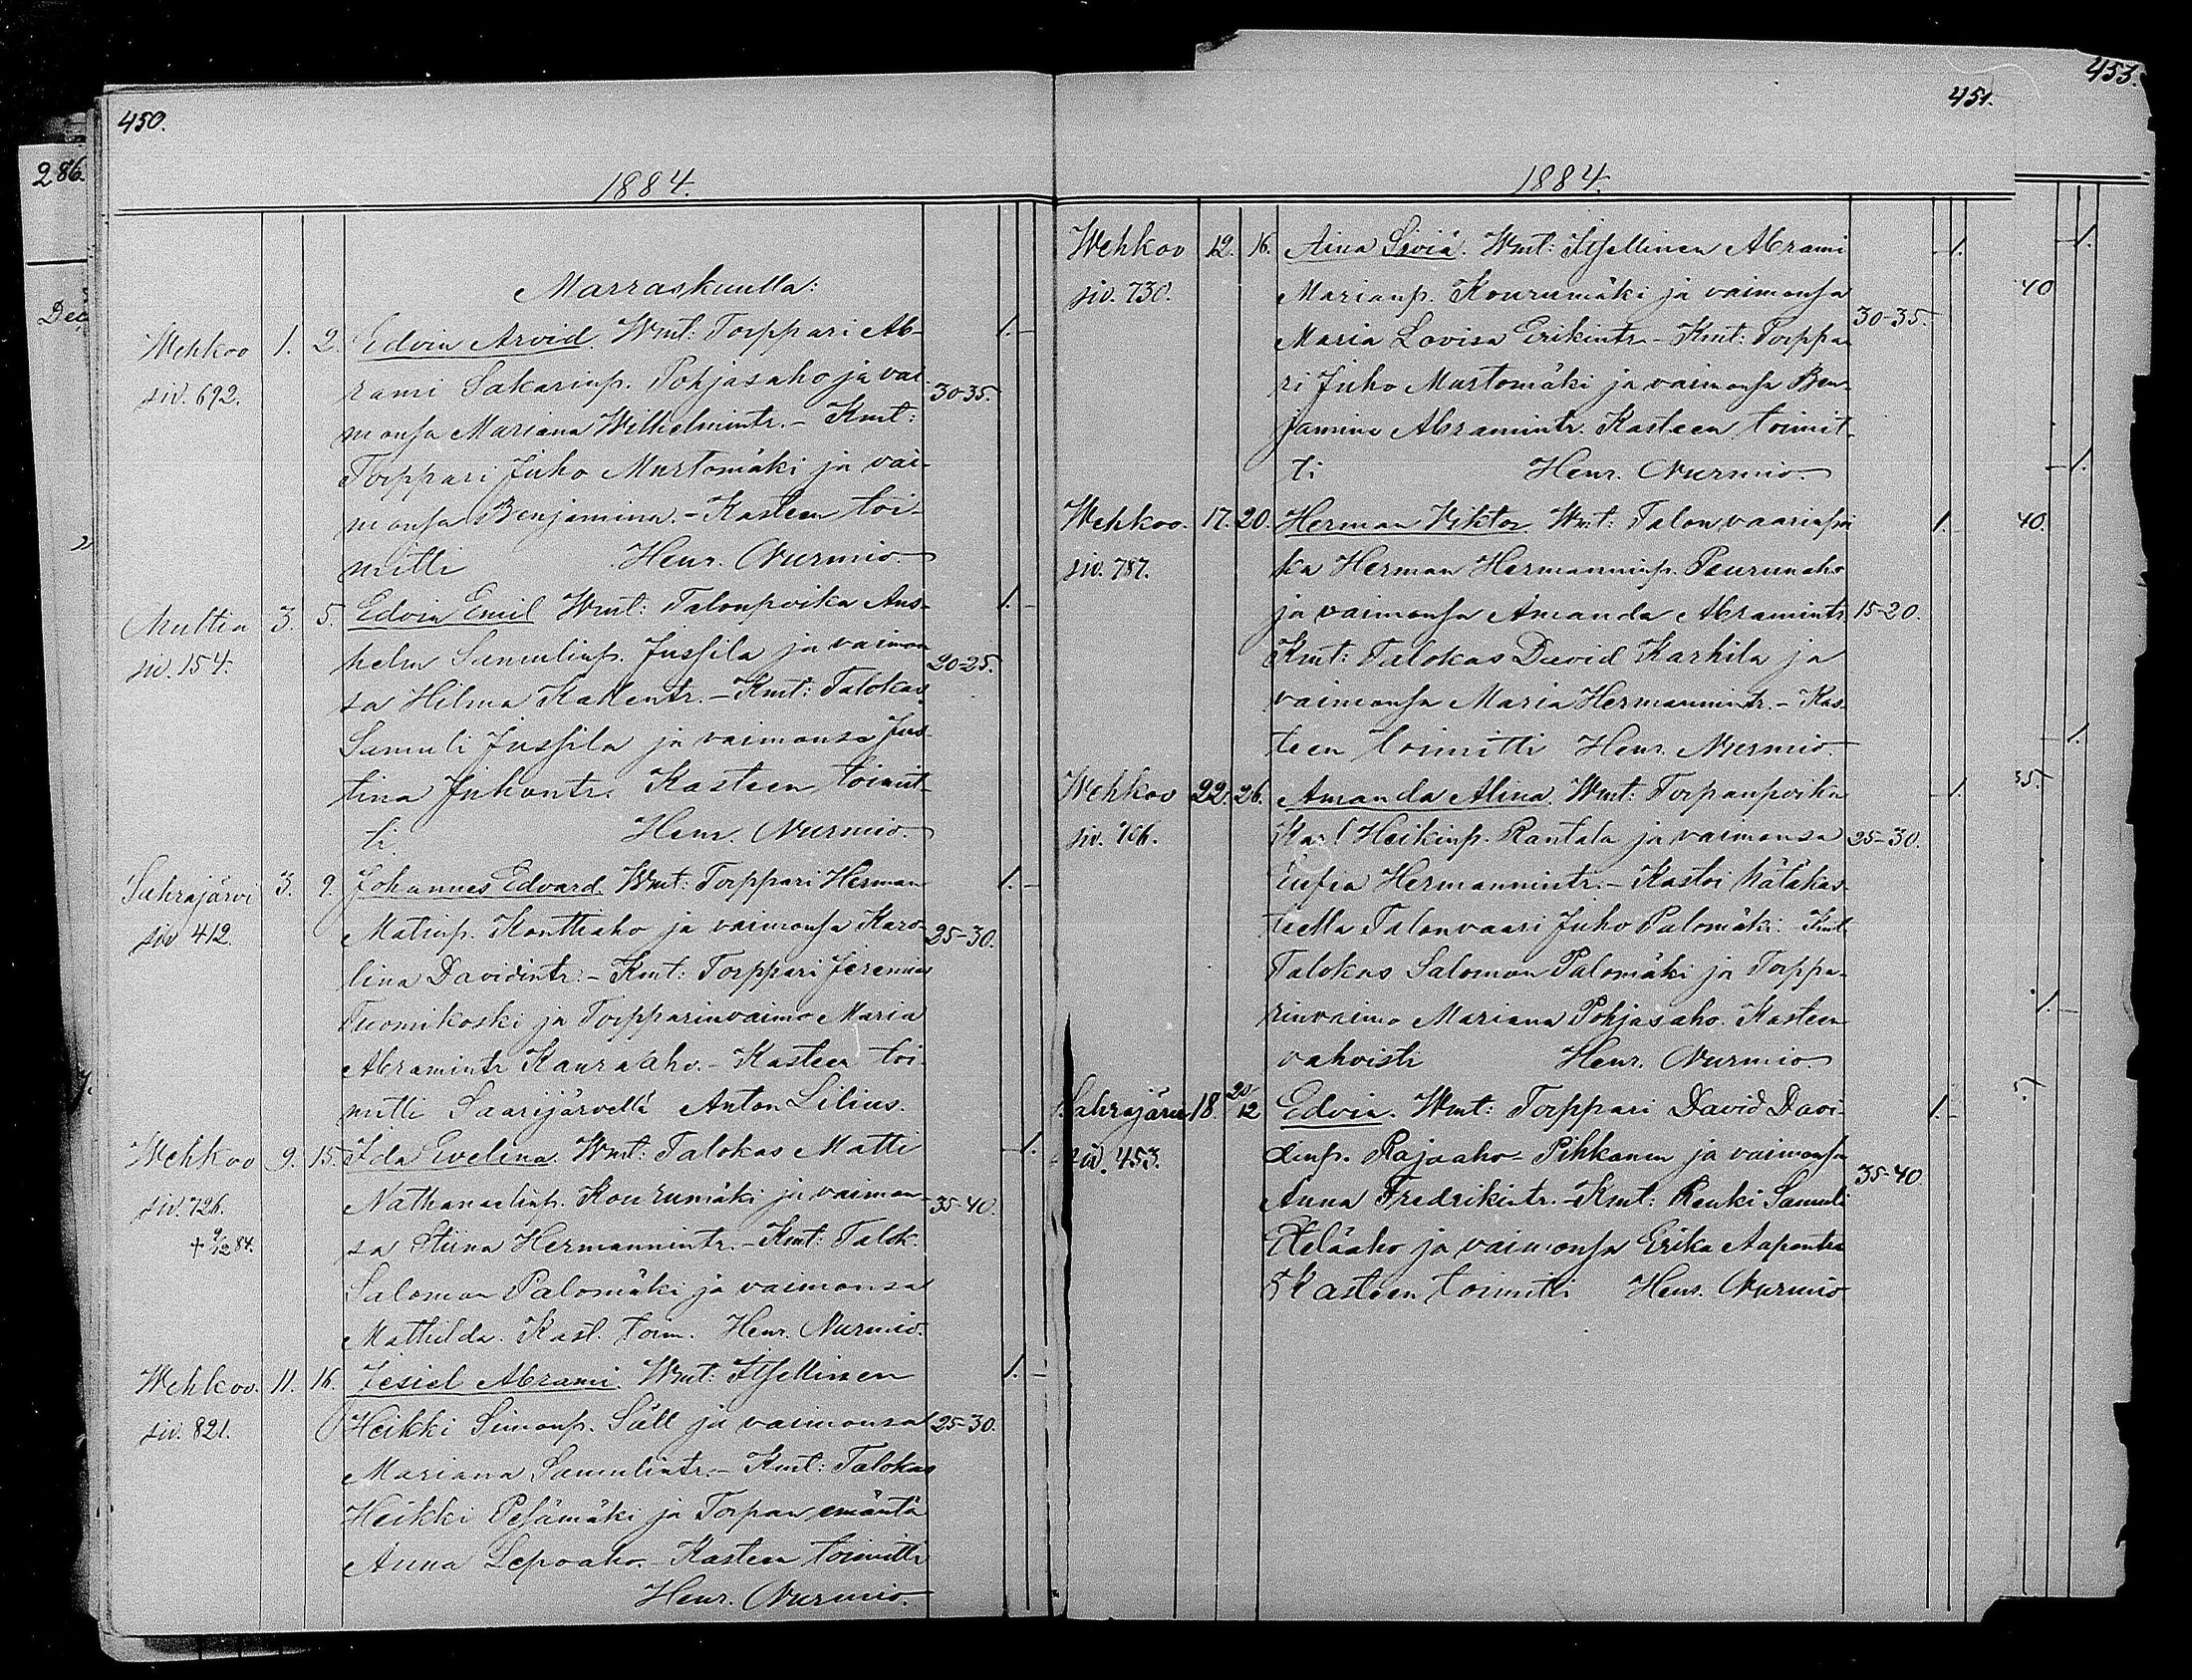 450.
1884.
Marraskuulla:
Wehkoo 1. 2. Edvin Arvid. Wmt: Torppari Ab- 1.
siv. 692. rami Sakarinp. Pohjasaho ja vai 30-35.
monsa Mariana Wilhelmintr. - Kmt:
Torppari Juho Murtomäki ja vai-
monsa Benjamina. - Kasteen toi-
mitti Henr. Nurmio
Multia 3. 5. Edvin Emil Wmt: Talonpoika Ans- 1.
siv. 154. helm Samulinp. Jussila ja vaimon 20-25.
sa Hilma Kallentr. - Kmt: Talokas
Samuli Jussila ja vaimonsa Jus-
tina Juhontr. Kasteen toimit-
ti Henr. Nurmio.
Sahrajärvi 3. 9. Johannes Edvard. Wmt: Torppari Herman 1.
siv 412. Matinp. Konttiaho ja vaimonsa Karo- 25-30.
lina Davidintr. - Kmt: Torppari Jeremias
Tuomikoski ja Torpparinvaimo Maria
Abramintr Kauraaho. - Kasteen toi-
mitti Saarijärvellä Anton Lilius.
Wehkoo 9. 15. Ida Evelena. Wmt: Talokas Matti 1.
siv. 726. Nathanaelinp. Kourumäki ja vaimon- 35-40.
+ 9/12 84. sa Stiina Hermannintr. - Kmt: Talok.
Salomon Palomäki ja vaimonsa
Mathilda. Kast. toim. Henr. Nurmio.
Wehkoo. 11. 16. Jesiel Abrami. Wmt: Itsellinen 1.
siv. 821. Heikki Simonp. Säll ja vaimonsa 25-30.
Mariana Samulintr. - Kmt: Talokas
Heikki Pesämäki ja Torpan emäntä
Anna Lepoaho. - Kasteen toimitti
Henr. Nurmio.
451.
1884.
Wehkoo 12. 16. Aina Liviä. Wmt: Itsellinen Abrami 1.
siv. 730. Marianp. Kourumäki ja vaimonsa
Maria Lovisa Erikintr. - Kmt: Torppa 30-35.
ri Juho Murtomäki ja vaimonsa Ben-
jamina Abramintr. Kasteen toimit-
ti Henr. Nurmio.
Wehkoo. 17. 20. Herman Viktor. Wmt: Talonvaarinpoi 1.
siv. 787. ka Herman Hermanninp. Peurunaho
ja vaimonsa Amanda Abramintr 15-20.
Kmt: Talokas David Karhila ja
vaimonsa Maria Hermannintr. - Kas-
teen toimitti Henr. Nurmio
Wehkoo 22. 26. Amanda Alina. Wmt: Torpanpoika 1.
Karl Heikinp. Rantala ja vaimonsa 25-30.
Eufia Hermannintr. - Kastoi hätäkas-
teella Talonvaari Juho Palomäki. Kmt
Talokas Salomon Palomäki ja Torppa-
rinvaimo Mariana Pohjasaho. Kasteen
vahvisti Henr. Nurmio
Sahrajärvi 18. 20/12 Edvin. Wmt: Torppari David Davi- 1.
siv. 453. dinp. Rajaaho - Pihkanen ja vaimonsa
Anna Fredrikintr. - Kmt: Renki Samuli 35-40
Eteläaho ja vaimonsa Erika Aapontr
Kasteen toimitti Henr. Nurmio
453.
40
40.
35.
5
286.
Dec